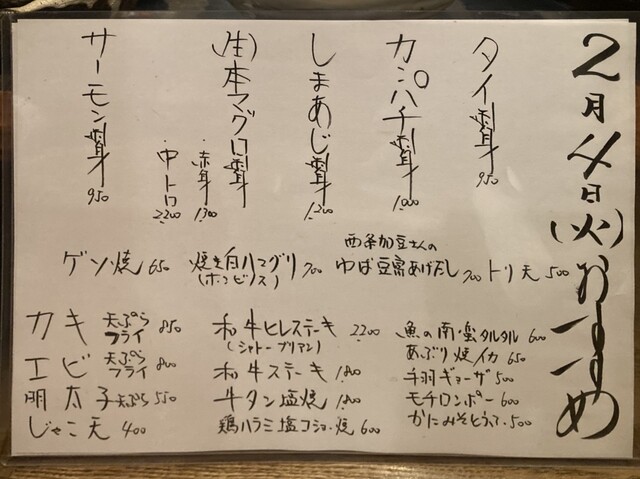 2月4日(火)おすすめ
タイ刺身 950
カンパチ刺身 1,000
しまあじ刺身 1,200
(生)本マグロ刺身
・赤身 1,300
・中トロ 2,200
サーモン刺身 950
西条加豆士んの
ゆば豆腐あげだし 700
トリ天 500
焼き白ハマグリ 700
(ホンビノス)
ゲソ焼 650
カキ 天ぷら フライ 850
エビ 天ぷら フライ 800
明太子天ぷら 550
じゃこ天 400
和牛ヒレステーキ 2200
(シャトーブリアン)
和牛ステーキ 1,800
牛タン塩焼 1,800
鶏ハラミ塩コショー焼 600
魚の南蛮タルタル 600
あぶり焼イカ 650
手羽ギョーザ 500
モチロンポー 600
かにみそとうふ 500